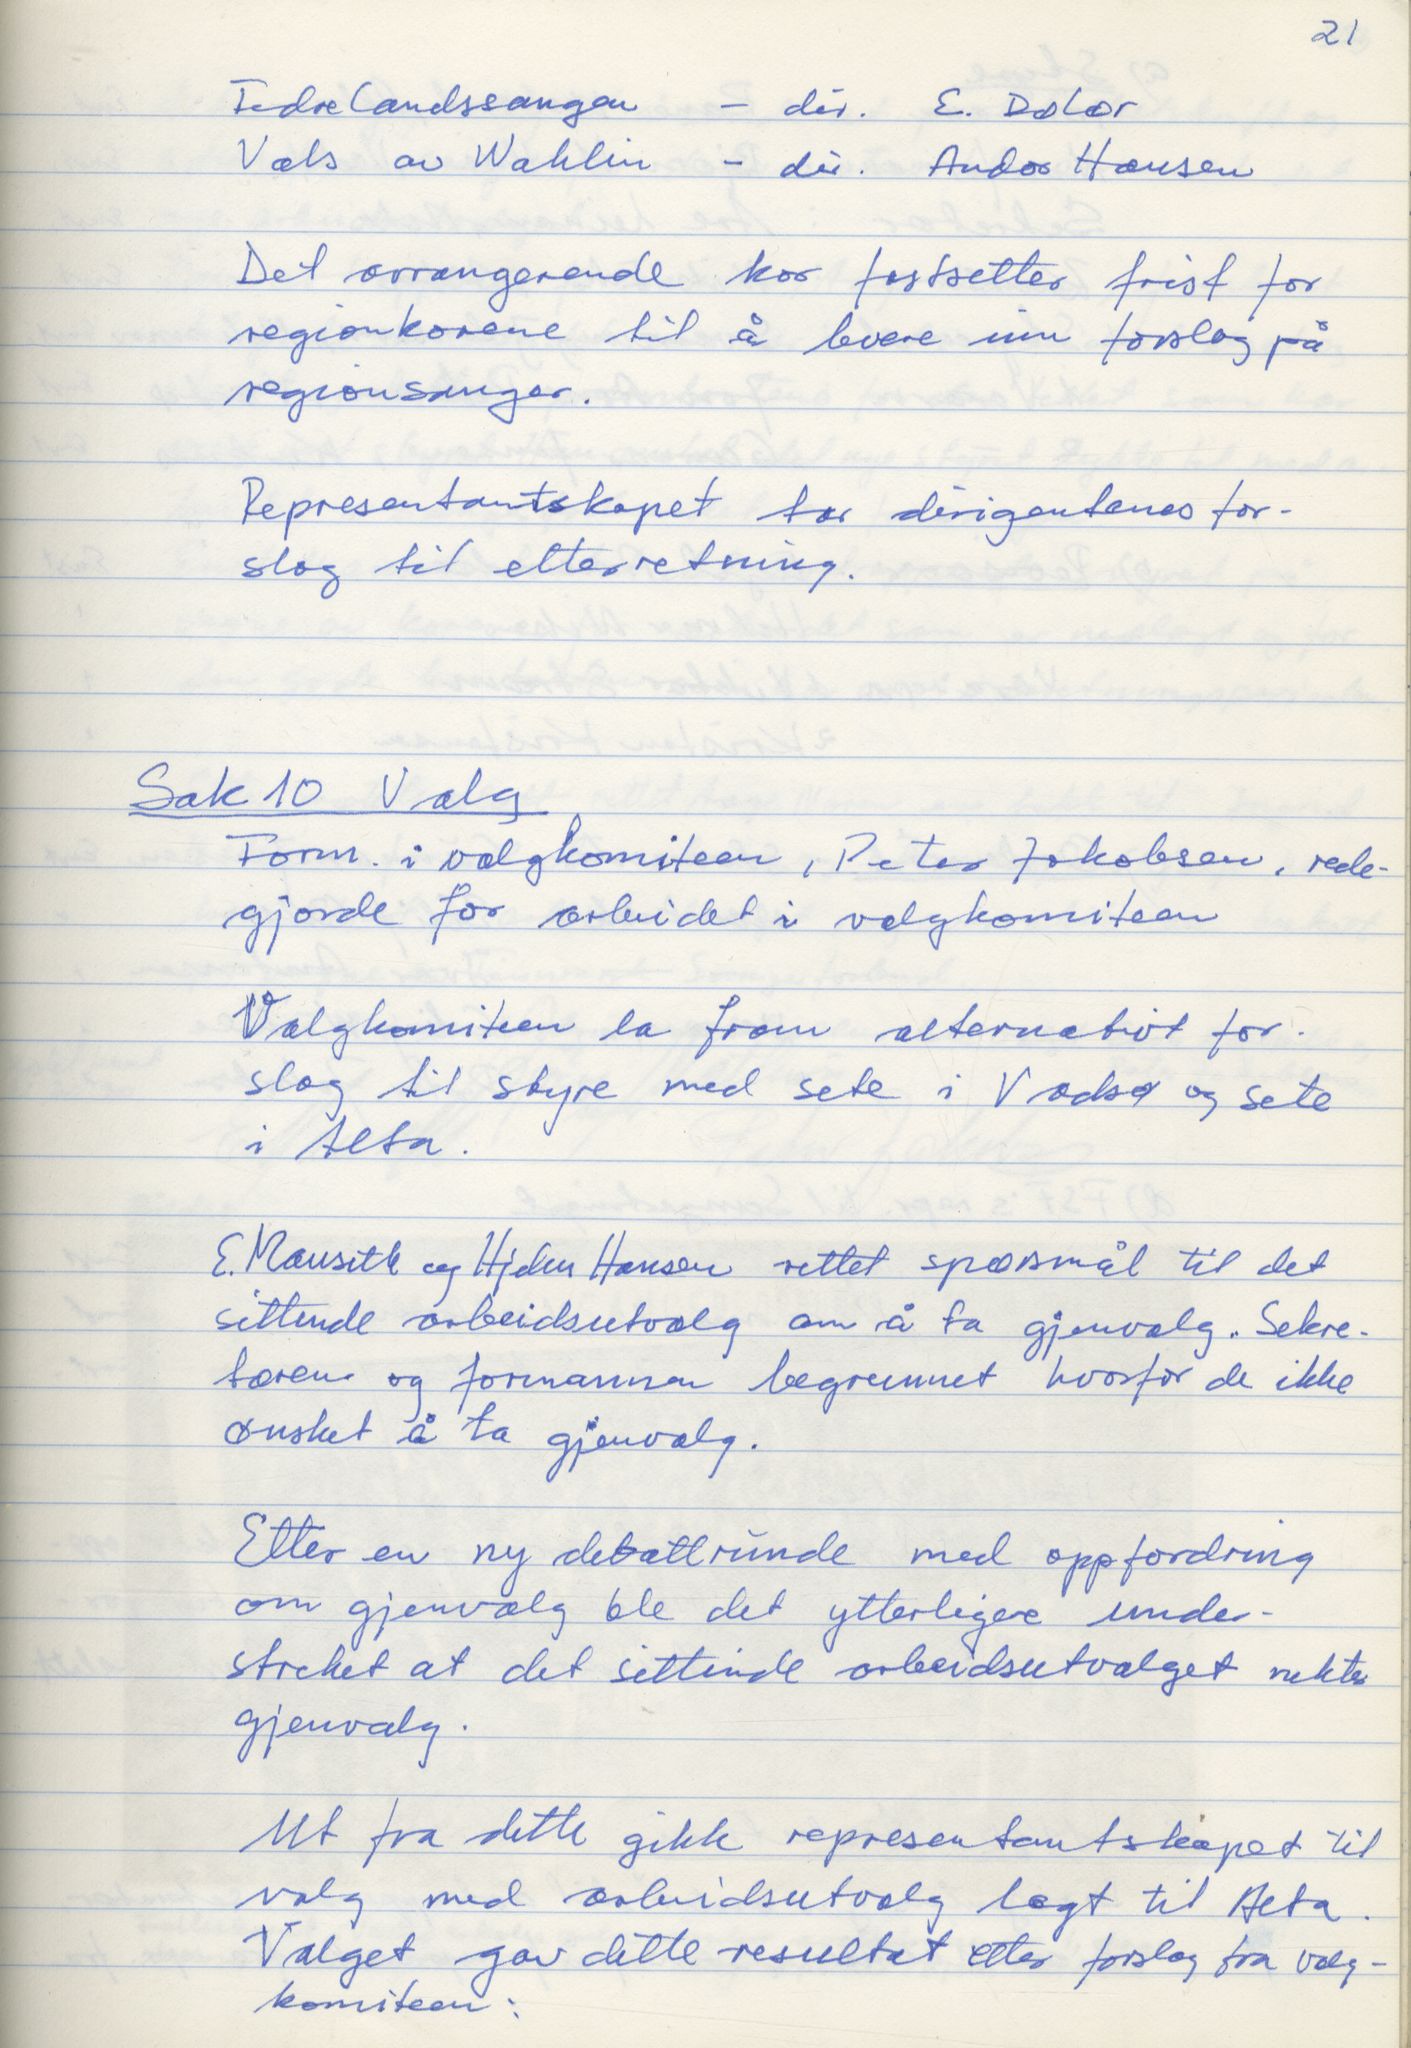 21
Fedrelandssangen - dir. E. Dolor
Vals av Wahlin - dir. Andor Hansen
Det arrangerende kor fastsetter frist for
regionkorene til å levere inn forslag på
regionsanger.
Representantskapet tar dirigentenes for-
slag til etterretning.
Sak 10 Valg
Form. i valgkomiteen, Peter Jakobsen, rede-
gjorde for arbeidet i valgkomiteen
Valgkomiteen la fram alternativt for-
slag til styre med sete i Vadsø og sete
i Alta.
E. Mausith og Hjelm Hansen rettet spørsmål til det
sittende arbeidsutvalg om å ta gjenvalg. Sekre-
tæren og formannen begrunnet hvorfor de ikke
ønsket å ta gjenvalg.
Etter en ny debattrunde med oppfordring
om gjenvalg ble det ytterligere under-
streket at det sittende arbeidsutvalget nekter
gjenvalg.
Ut fra dette gikk representantskapet til
valg med arbeidsutvalg lagt til Alta.
Valget gav dette resultat etter forslag fra valg-
komiteen: